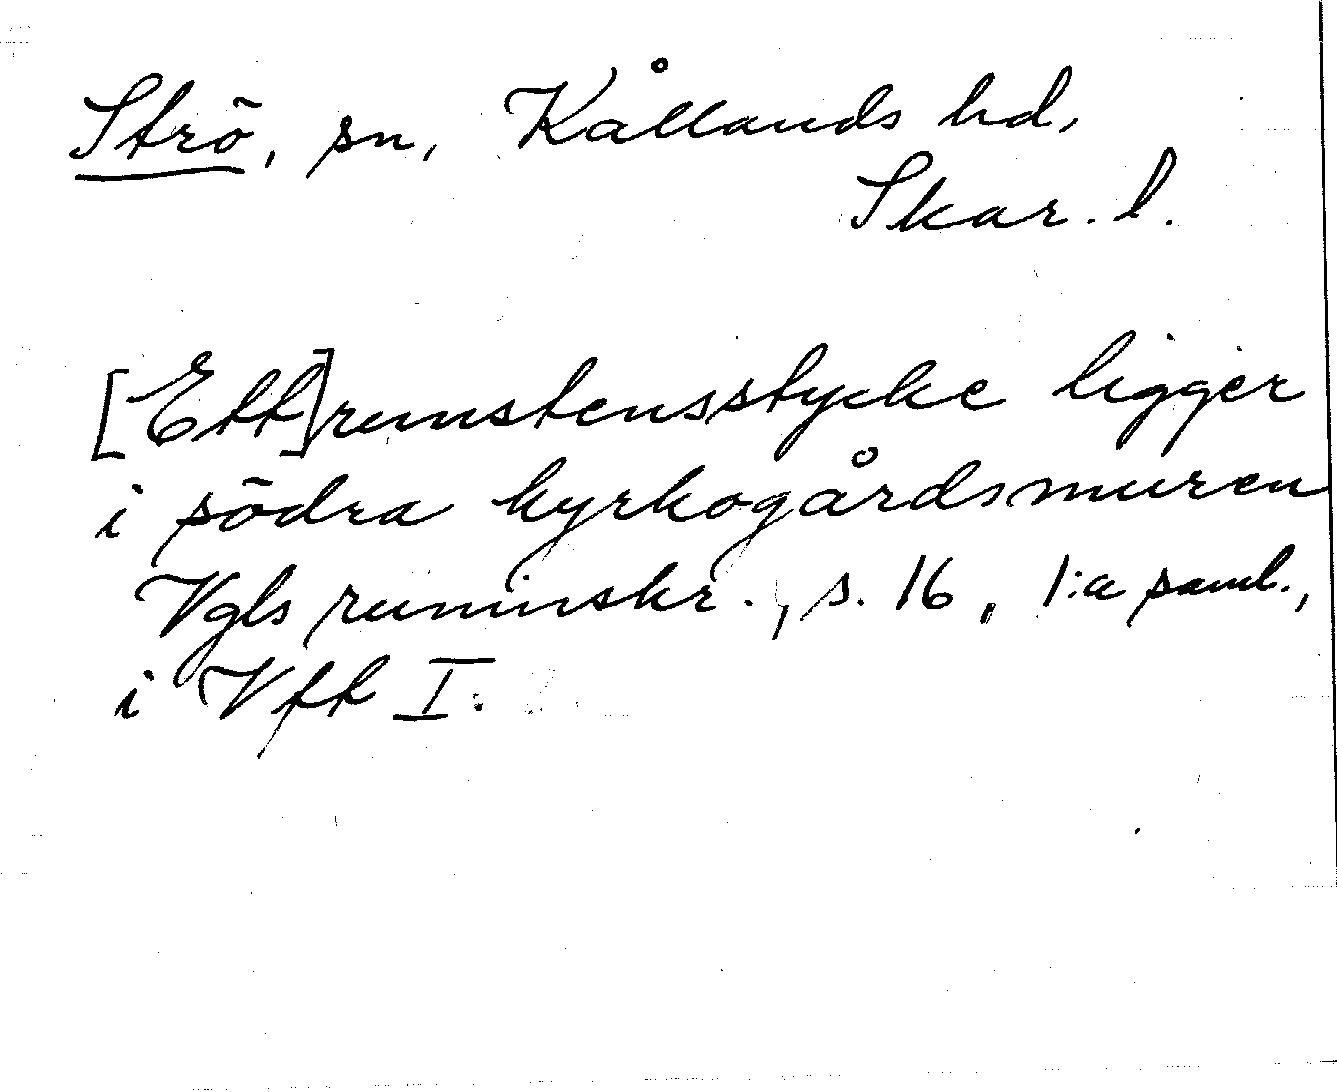 Strö, sn, Kållands hd,
Skar. l.
[Ett] runstensstycke ligger
i södra kyrkogårdsmuren
Vgls runinskr., s. 16, 1:a saml.,
i Vft I.